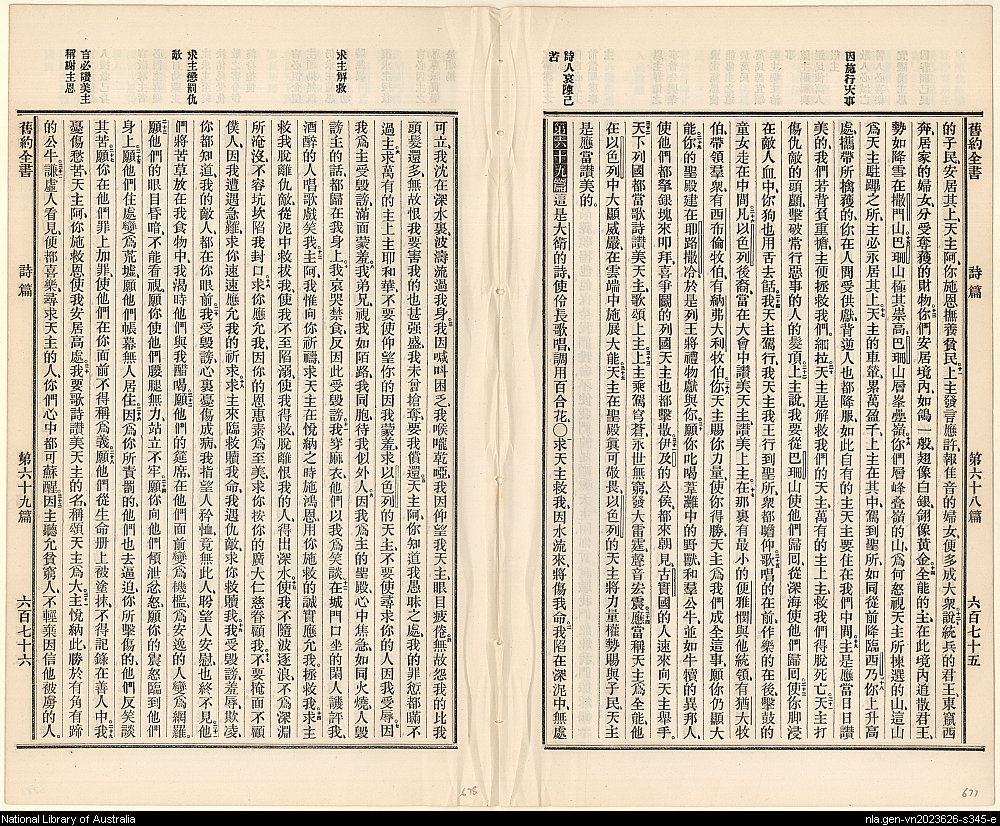 因施行大事
詩人哀陳己苦
舊約全書 詩篇 第六十八篇 六百七十五
的子民安居其上、天主阿、你施恩撫養貧民、上主發言應許、報佳音的婦女便多成大衆、說統兵的君王、東竄西
奔、居家的婦女分受奪獲的財物、你們安居境內、如鴿一般、翅像白銀、翎像黃金、全能的主、在此境內追散君王、
勢如降雪在撒門山、巴珊山極其崇高、巴珊山層峯疊嶺、你們層峰叠嶺的山、爲何怒視天主所揀選的山、這山
爲天主駐蹕之所、主必永居其上、天主的車輦累萬盈千、上主在其中、駕到聖所、如同從前降臨西乃、你上升高
處、攜帶所擒獲的、你在人間受供獻、背逆人也都降服、如此自有的主天主要住在我們中間、主是應當日日讚
美的、我們若背負重擔、主便拯救我們、細拉、天主是解救我們的天主、萬有的主上主救我們得脫死亡、天主打
傷仇敵的頭顱、擊破常行惡事的人的髮頂、上主說、我要從巴珊山使他們歸囘、從深海使他們歸囘、使你脚浸
在敵人血中、你狗也用舌去餂、我天主駕行、我天主我王行到聖所、衆都瞻仰、歌唱的在前、作樂的在後、擊鼓的
童女走在中間、凡以色列後裔、當在大會中讚美天主、讚美上主、在那裏有最小的便雅憫與他統領、有猶大牧
伯帶領羣衆、有西布倫牧伯、有納弗大利牧伯、你天主賜你力量、使你得勝、天主爲我們成全這事、願你仍顯大
能、你的聖殿建在耶路撒冷、於是列王將禮物獻與你、願你叱喝葦灘中的野獸和羣公牛、並如牛犢的異邦人、
使他們都拏銀塊來叩拜、喜爭鬭的列國、天主也都擊散、伊及的公侯都來朝見、古實國的人速來向天主舉手。
天下列國都當歌詩讚美天主、歌頌上主、上主乘駕穹蒼、永世無窮、發大雷霆、聲音宏震、應當稱天主爲全能、他
在以色列中大顯威嚴、在雲端中施展大能、天主在聖殿眞可敬畏、以色列的天主、將力量權勢賜與子民、天主
是應當讚美的。
第六十九篇 這是大衛的詩、使伶長歌唱、調用百合花、〇求天主救我、因水流來將傷我命、我陷在深泥中、無處
求主解救
求主懲罰仇敵
言必讚美主稱謝主恩
可立、我沈在深水裏、波濤流過我身、我因喊叫困乏、我喉嚨乾啞、我因仰望我天主、眼目疲倦、無故怨我的比我
頭髮還多、無故恨我要害我的也甚强盛、我未曾搶奪、要我償還、天主阿、你知道我愚昧之處、我的罪愆都瞞不
過主、求萬有的主上主耶和華、不要使仰望你的因我蒙羞、求以色列的天主、不要使尋求你的人因我受辱、因
我爲主受毀謗、滿面蒙羞、我弟兄視我如陌路、我同胞待我似外人、因我爲主的聖殿、心中焦急、如同火燒、人毀
謗主的話、都歸在我身上、我哀哭禁食、反因此受毀謗、我穿麻衣、他們以我爲笑談、在城門口坐的閑人譏評我、
酒醉的人唱歌戲笑我、主阿、我惟向你祈禱、求天主在悅納之時、施鴻恩用你施救的誠實應允我、拯救我、求主
救我脫離仇敵、從泥中拯救我、使我不至陷溺、使我得救脫離恨我的人、得出深水、使我不隨波逐浪、不爲深淵
所淹沒、不容坑坎陷我封口、求你應允我、因你的恩惠素爲至美、求你按你的廣大仁慈眷顧我、不要掩面不顧
僕人、因我遭遇急難、求你速速應允我的祈求、求主來臨救贖我命、我遇仇敵、求你救贖我、我受毀謗羞辱欺凌、
你都知道、我的敵人都在你眼前、我受毀謗、心裏憂傷成病、我指望人矜恤、竟無此人、盼望人安慰、也終不見、他
們將苦草放在我食物中、我渴時他們與我醋喝、願他們的筵席在他們面前變爲機檻、爲安逸的人變爲網羅。
願他們的眼目昏暗、不能看視、願你使他們腰腿無力、站立不牢、願你向他們傾泄忿怒、願你的震怒臨到他們
身上、願他們住處變爲荒墟、願他們帳幕無人居住、因爲你所責罰的、他們也去逼迫、你所擊傷的、他們反笑談
其苦、願你在他們罪上加罪、使他們在你面前不得稱爲義、願他們從生命册上被塗抹、不得記錄在善人中、我
憂傷愁苦、天主阿、你施救恩、使我安居高處、我要歌詩讚美天主的名、稱頌天主爲大、主悅納此勝於有角有蹄
的公牛、謙虛人看見便都喜樂、尋求天主的人、你們心中都可蘇醒、因主聽允貧窮人、不輕棄因信他被虜的人。
舊約全書 詩篇 第六十九篇 六百七十六
678
677
National Library of Australia
nla.gen-vn2023626-s345-e